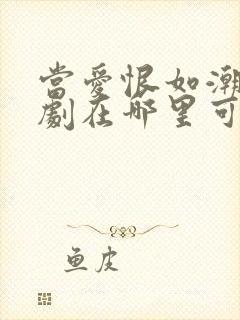 當愛恨如潮
劇在哪里可
鱼皮